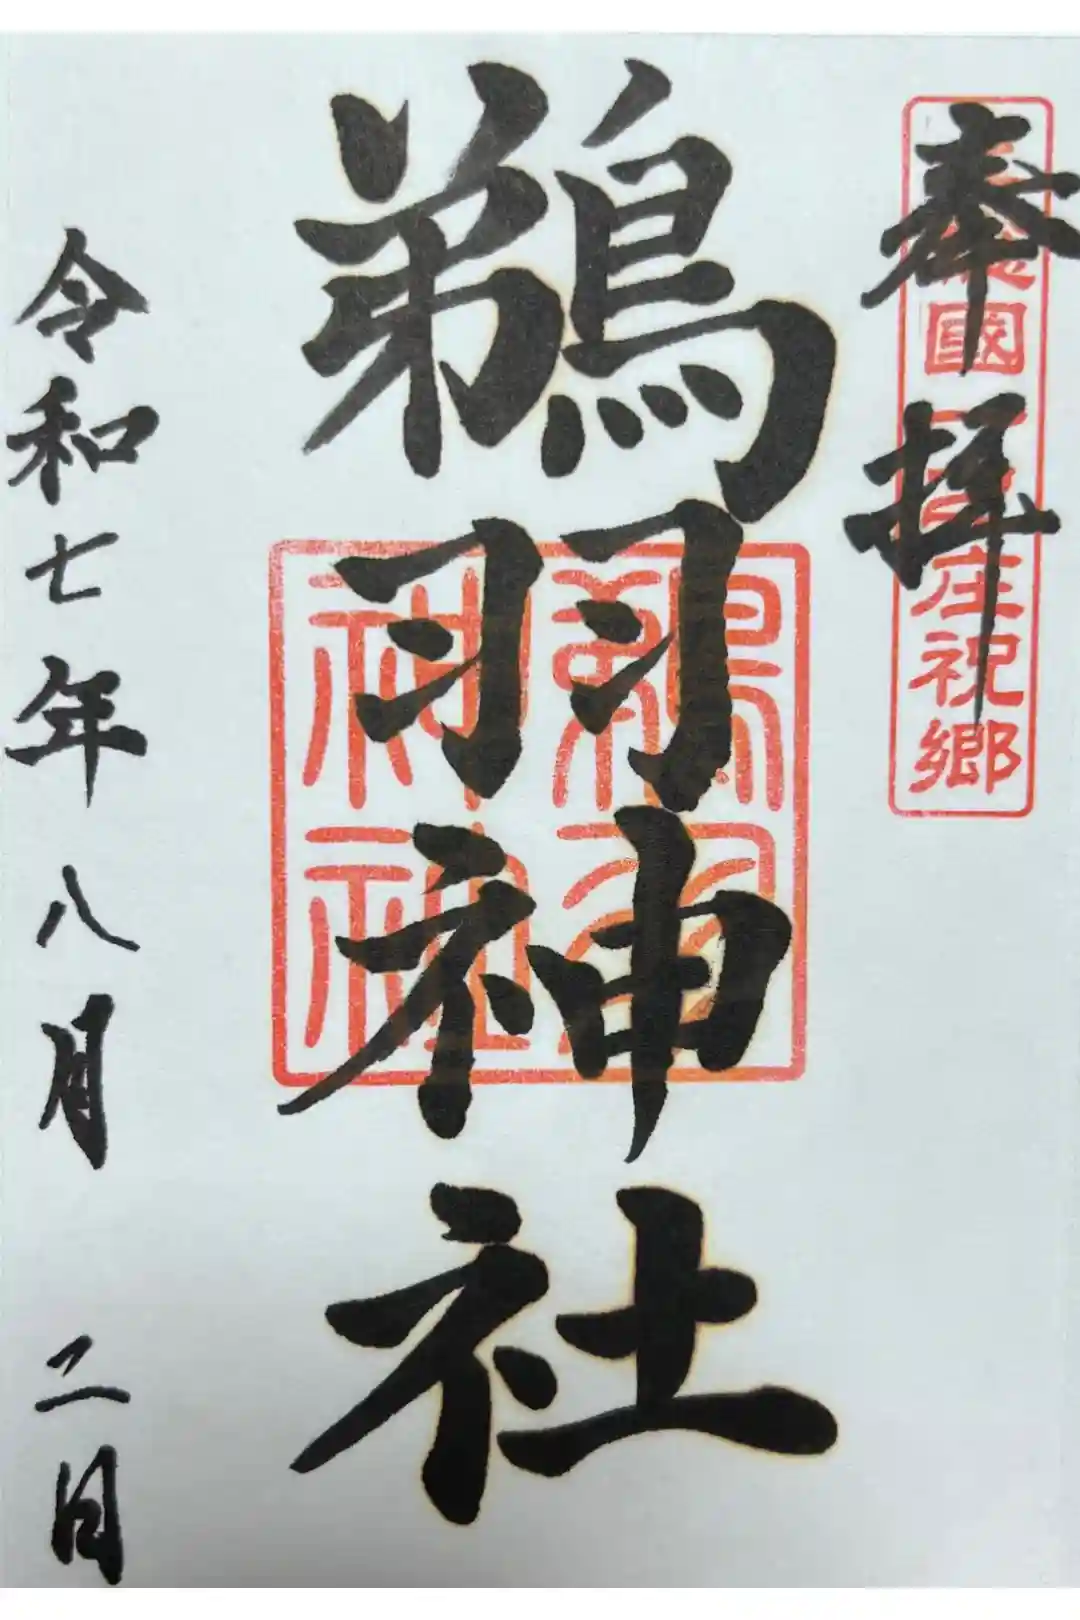 奉拝
國 庄祝郷
鵜羽神社
鵜羽神社
令和七年八月二日